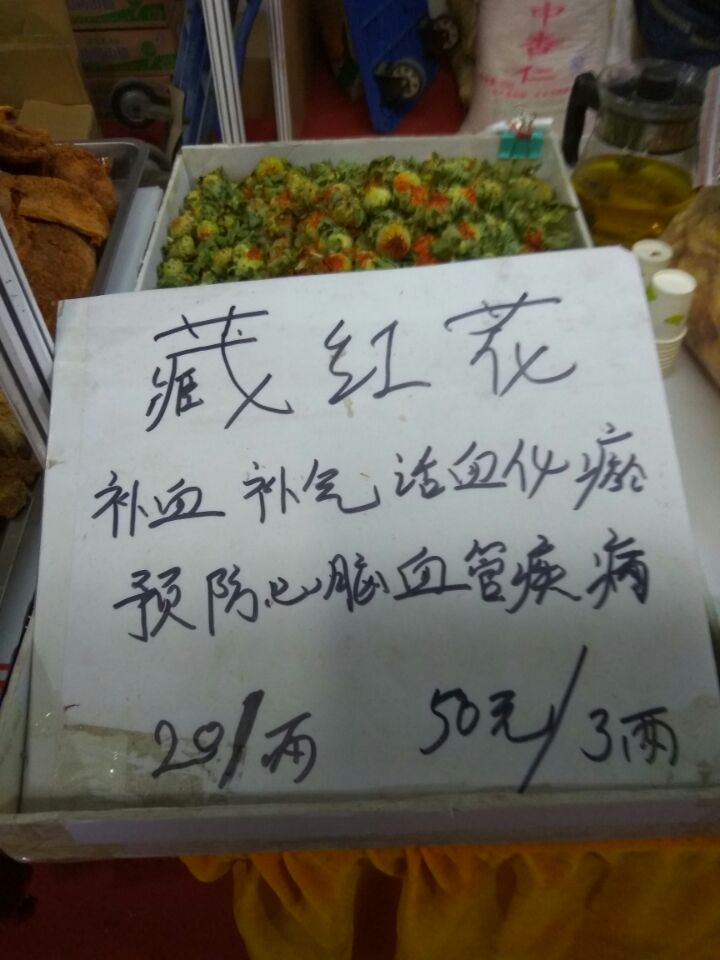 中杏仁
藏红花
补血 补气 活血化瘀
预防心脑血管疾病
20/两 50元/3两